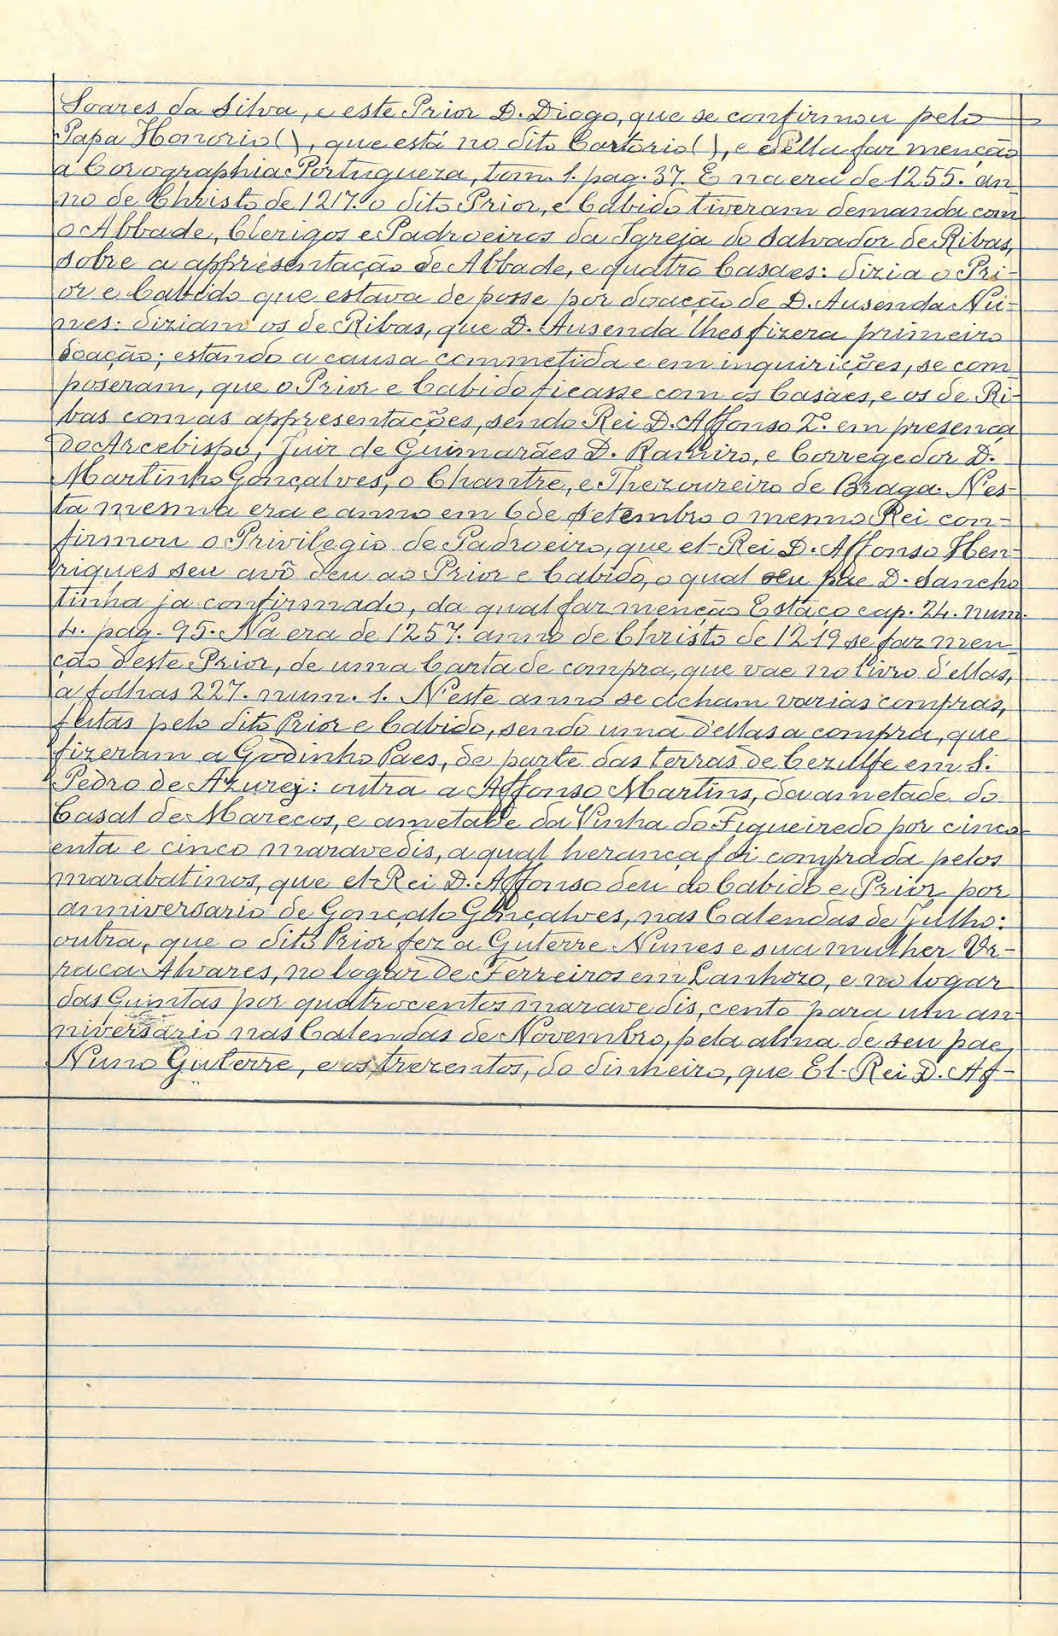 Soares da Silva, e este Prior D. Diogo, que se confirmou pelo
Papa Honorio ( ), que está no dito Cartorio ( ), e d'ella faz menção
a Corographia Portugueza, tom. 1. pag. 37. E na era de 1255. an-
no de Christo de 1217. o dito Prior, e Cabido tiveram demanda com
o Abbade, Clerigos e Padroeiros da Igreja do Salvador de Ribas,
sobre a appresentação de Abbade, e quatro Casaes: dizia o Pri-
or e Cabido que estava de posse por doação de D. Ausenda Nu-
nes: diziam os de Ribas, que D. Ausenda lhes fizera primeiro
doação; estando a causa commetida e em inquirições, se com
poseram, que o Prior e Cabido ficasse com os Casaes, e os de Ri-
bas com as appresentações, sendo Rei D. Affonso 2.º em presença
do Arcebispo, Juiz de Guimarães D. Ramiro, e Corregedor D.
Martinho Gonçalves, o Chantre, e Thezoureiro de Braga. N'es-
ta mesma era e anno em 6 de Setembro o mesmo Rei con-
firmou o Privilegio de Padroeiro, que el-Rei D. Affonso Hen-
riques seu avô deu ao Prior e Cabido, o qual seu pae D. Sancho
tinha ja confirmado, da qual faz menção Estaço cap. 24. num.
4. pag. 95. Na era de 1257. anno de Christo de 1219 se faz men-
ção d'este Prior, de uma Carta de compra, que vae no livro d'ellas,
a folhas 227. num. 1. N'este anno se acham varias compras,
feitas pelo dito Prior e Cabido, sendo uma d'ellas a compra, que
fizeram a Godinho Paes, de parte das terras de Cezulfe em S.
Pedro de Azurej: outra a Affonso Martins, da ametade do
Casal de Marecos, e ametade da Vinha do Figueiredo por cinco-
enta e cinco maravedis, a qual herança foi comprada pelos
marabatinos, que el-Rei D. Affonso deu ao Cabido e Prior por
anniversario de Gonçalo Gonçalves, nas Calendas de Julho:
outra, que o dito Prior fez a Guterre Nunes e sua mulher Ur-
raca Alvares, no logar de Ferreiros em Lanhozo, e no logar
das Quintas por quatrocentos maravedis, cento para um an-
niversario nas Calendas de Novembro, pela alma de seu pae
Nuno Guterre, e os trezentos, do dinheiro, que El-Rei D. Af-